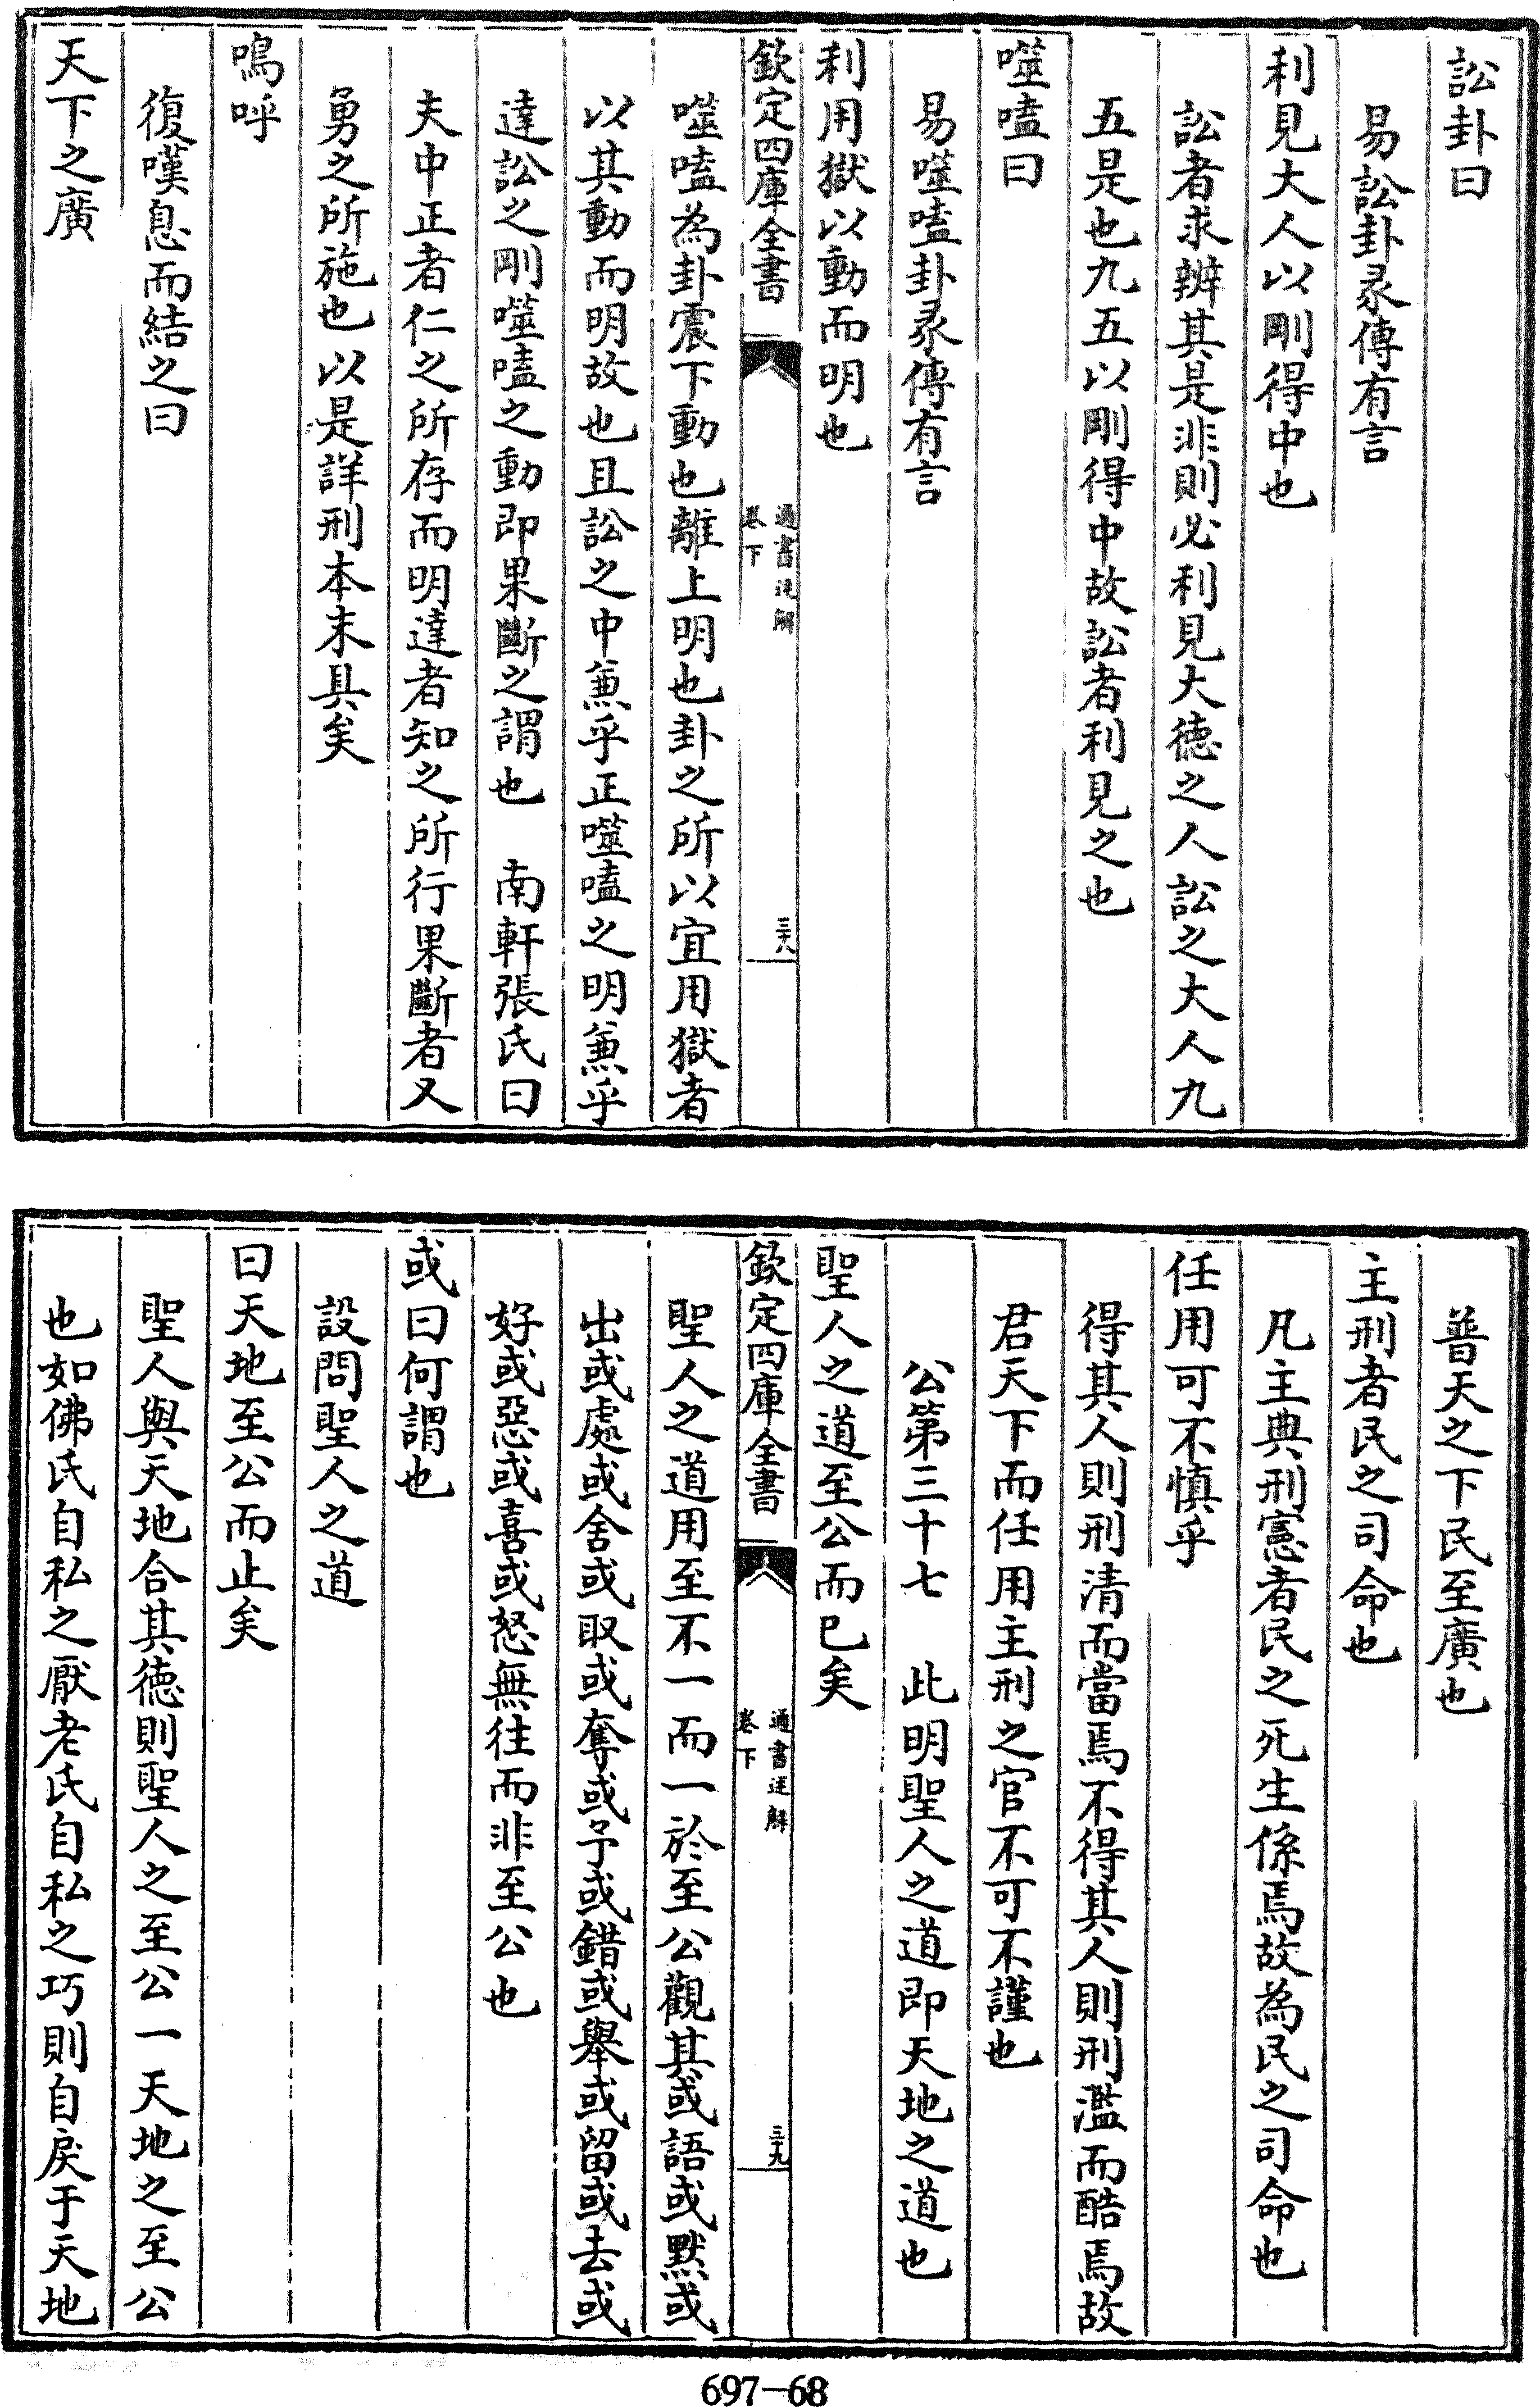 訟卦曰
易訟卦彖傳有言
利見大人以剛得中也
訟者求辨其是非則必利見大徳之人訟之大人九
五是也九五以剛得中故訟者利見之也
噬嗑曰
易噬嗑卦彖傳有言
利用獄以動而明也
欽定四庫全書
通書述解
卷下
三十八
噬嗑為卦震下動也離上明也卦之所以宜用獄者
以其動而明故也且訟之中兼乎正噬嗑之明兼乎
達訟之剛噬嗑之動即果斷之謂也　南軒張氏曰
夫中正者仁之所存而明達者知之所行果斷者又
勇之所施也以是詳刑本末具矣
嗚呼
復嘆息而結之曰
天下之廣
普天之下民至廣也
主刑者民之司命也
凡主典刑憲者民之死生係焉故為民之司命也
任用可不慎乎
得其人則刑清而當焉不得其人則刑濫而酷焉故
君天下而任用主刑之官不可不謹也
公第三十七　此明聖人之道即天地之道也
聖人之道至公而已矣
欽定四庫全書
通書述解
卷下
三十九
聖人之道用至不一而一於至公觀其或語或黙或
出或處或舍或取或奪或予或錯或舉或留或去或
好或惡或喜或怒無往而非至公也
或曰何謂也
設問聖人之道
曰天地至公而止矣
聖人與天地合其徳則聖人之至公一天地之至公
也如佛氏自私之厭老氏自私之巧則自戾于天地
697-68